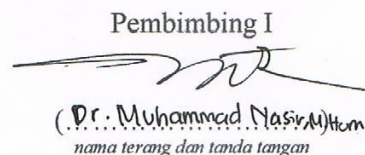 Pembimbing I
(Dr. Muhammad Nasir, M)Hum
nama terang dan tanda tangan